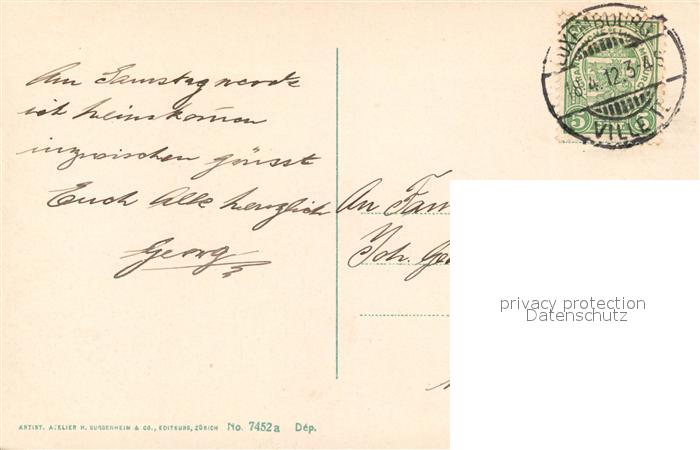 Am Samstag werde
ich heimkom̄en
inzwischen grüsst
Euch Alle herzlich
Georg
An Fam
Joh. Ge
LUXEMBOURG
18.4.12.3-4S
VILLE
5 5
privacy protection
Datenschutz
ARTIST. ATELIER H. GUGGENHEIM & CO., EDITEURS, ZÜRICH No. 7452a Dép.